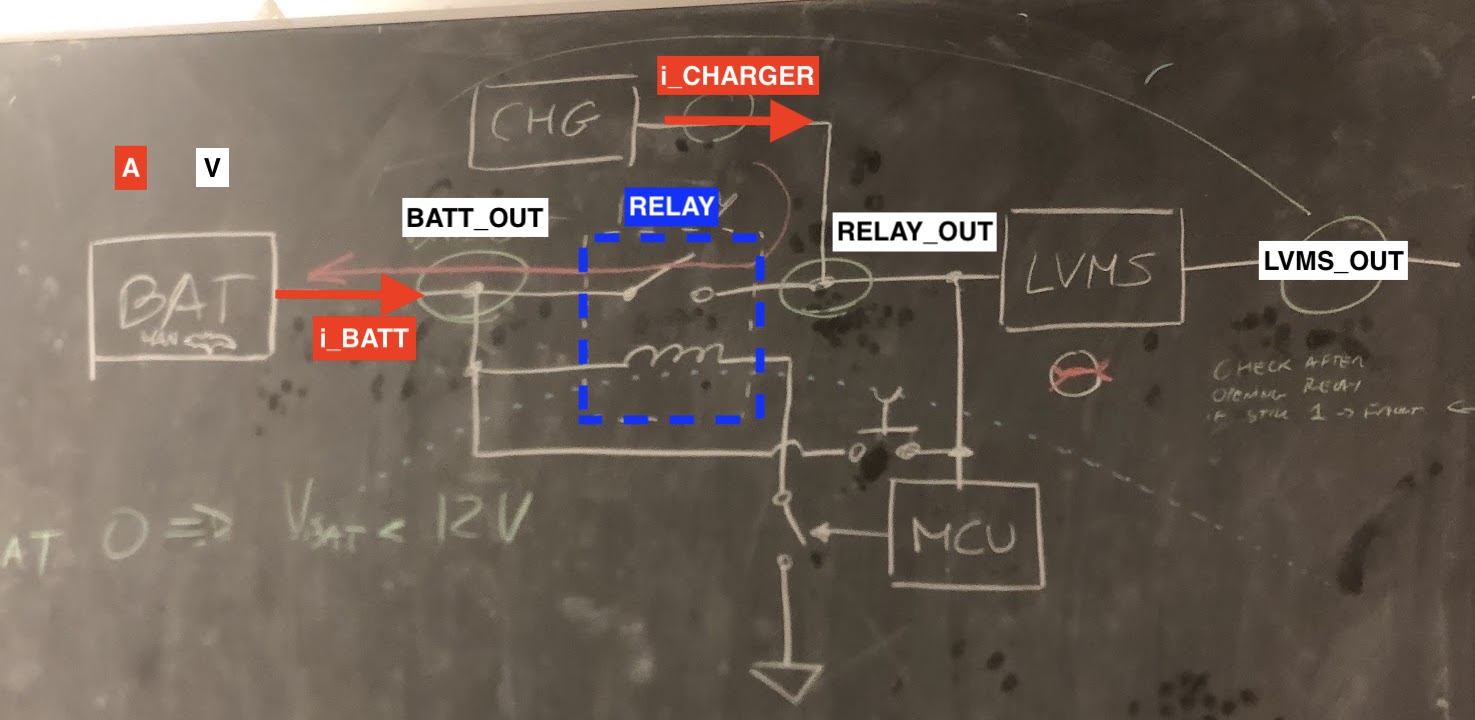 i_CHARGER
CHG
A V
BATT_OUT
RELAY
RELAY_OUT
BAT
LVMS
LVMS_OUT
i_BATT
CHECK AFTER
OPENING RELAY
IF STILL 1 -> FAULT
AT 0 => VBAT < 12V
MCU